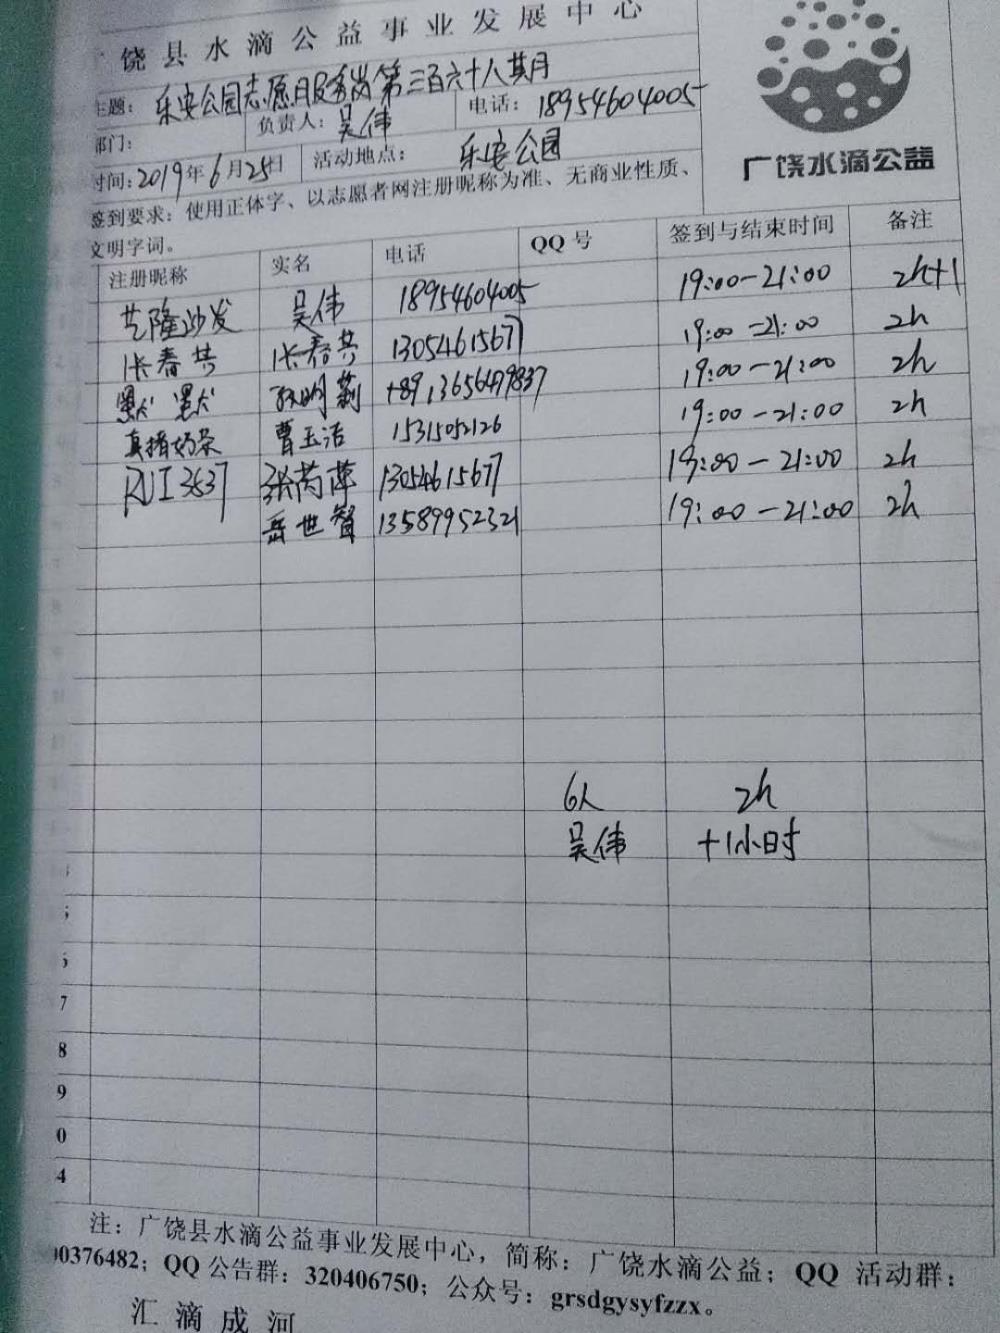 广饶县水滴公益事业发展中心
主题：乐安公园志愿服务岗第三百六十八期
部门： 负责人：吴伟 电话：18954604005
时间：2019年6月25日 活动地点： 乐安公园
广饶水滴公益
签到要求：使用正体字、以志愿者网注册昵称为准、无商业性质、
文明字词。
注册昵称 实名 电话 QQ号 签到与结束时间 备注
艺隆沙发 吴伟 18954604005 19:00-21:00 2h+1
张春共 张春共 13054615677 19:00-21:00 2h
默默 孙明 19:00-21:00 2h
真播奶茶 曹玉洁 1531052126 19:00-21:00 2h
RUI3637 张芮萍 13054615677 19:00-21:00 2h
岳世智 13589952321 19:00-21:00 2h
6人 2h
吴伟 +1小时
7
8
9
0
4
注：广饶县水滴公益事业发展中心，简称：广饶水滴公益；QQ 活动群：
00376482；QQ公告群：320406750；公众号：grsdgysyfzzx。
汇滴成河